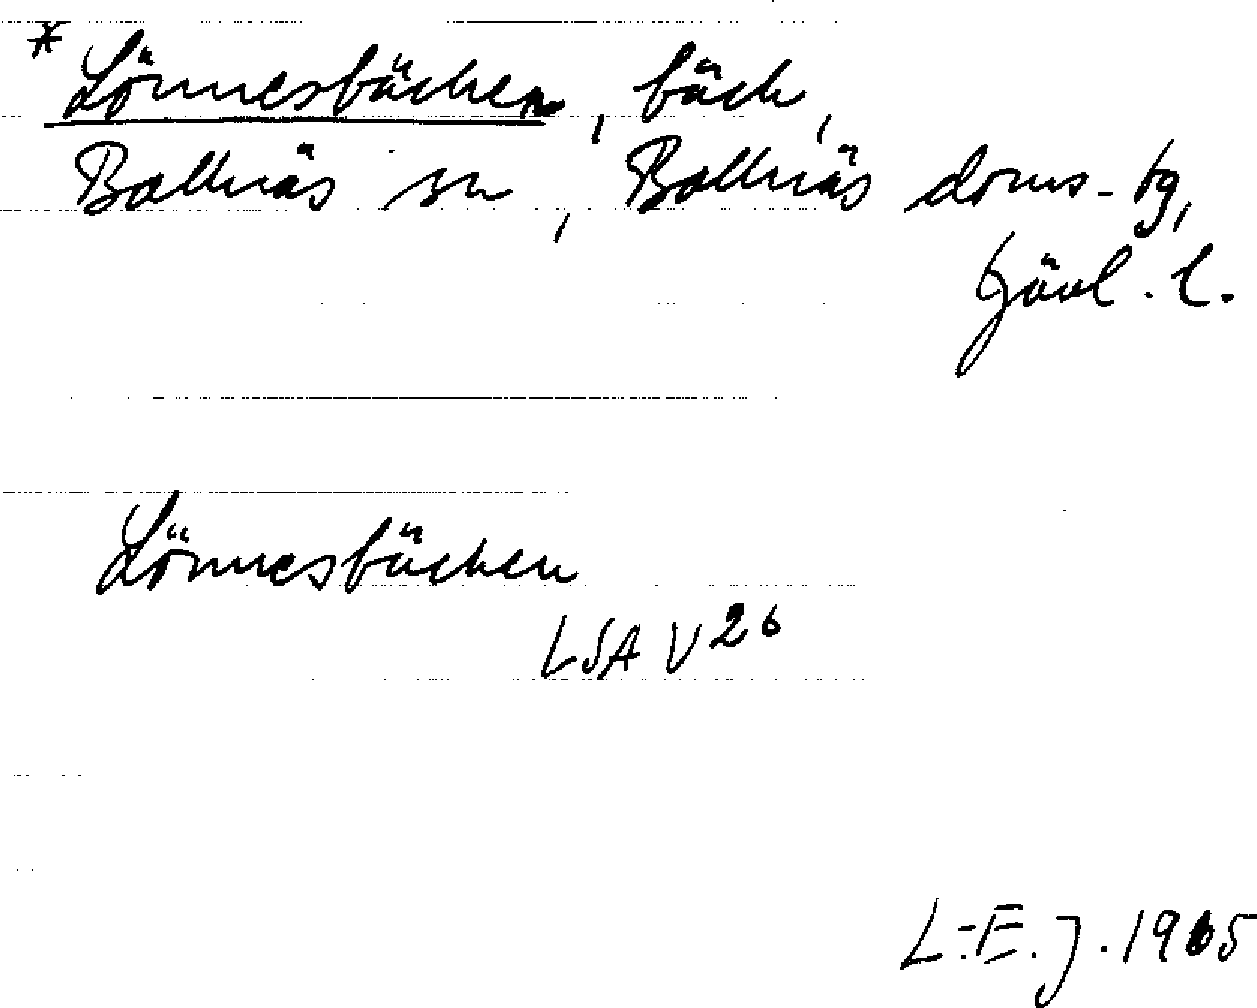 * Lönnesbäcken, bäck,
Bollnäs sn, Bollnäs doms-tg,
Gävl. l.
Lönnesbäcken
LSA V26
L-E. J. 1965